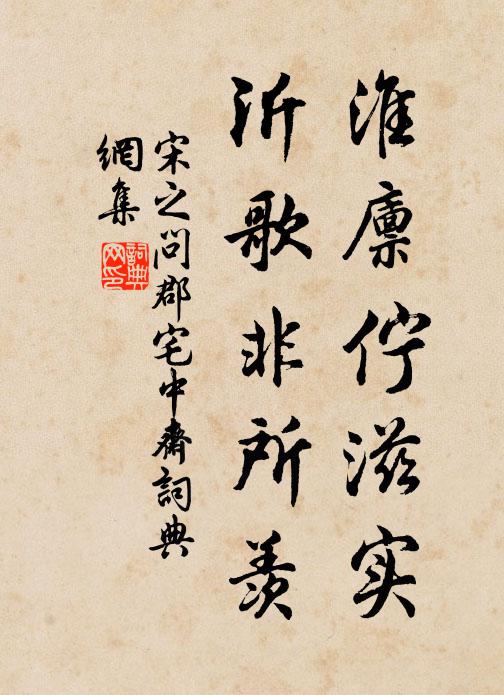 淮廪伫滋实
沂歌非所羡
宋之问郡宅中斋詞典
網集
詞典
网印